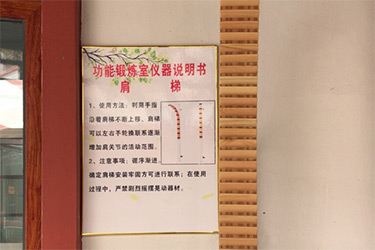 功能锻炼室仪器说明书
肩 梯
1、使用方法：利用手指
沿着肩梯不断上移，肩梯
可以左右手轮换联系逐渐
增加肩关节的活动范围。
2、注意事项：循序渐进，
确定肩梯安装牢固方可进行联系；在使用
过程中，严禁剧烈摇摆晃动器材。